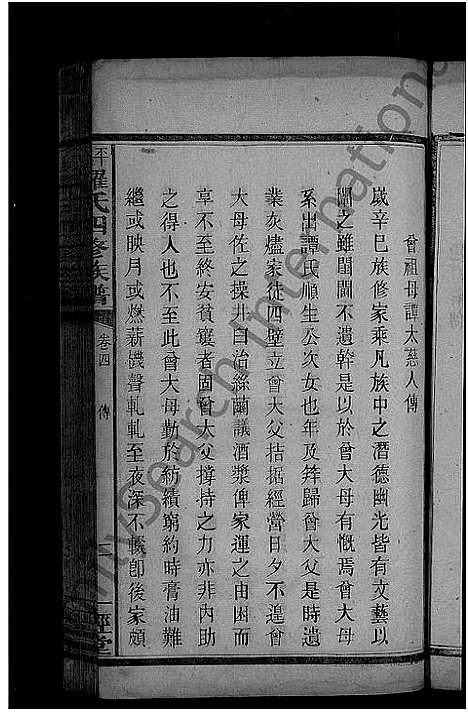 曾祖母譚太慈人傳
歲辛巳族修家乘凡族中之潛德幽光皆有文藝以
闡之雖閨閫不遺斡是以於曾大母有慨焉曾大母
系出譚氏順生公次女也年及筓歸曾大父是時遺
業灰燼家徒四壁立曾大父拮据經營日夕不遑曾
大母佐之操井臼治絲繭議酒漿俾家運之由困而
享不至終安貧窶者固曾大父撐持之力亦非內助
之得人也不至此曾大母勤於紡績窮約時膏油難
繼或映月或燃薪機聲軋軋至夜深不輟卽後家頗
羅氏四修族譜
卷四
傳
二
堂
mysearch International